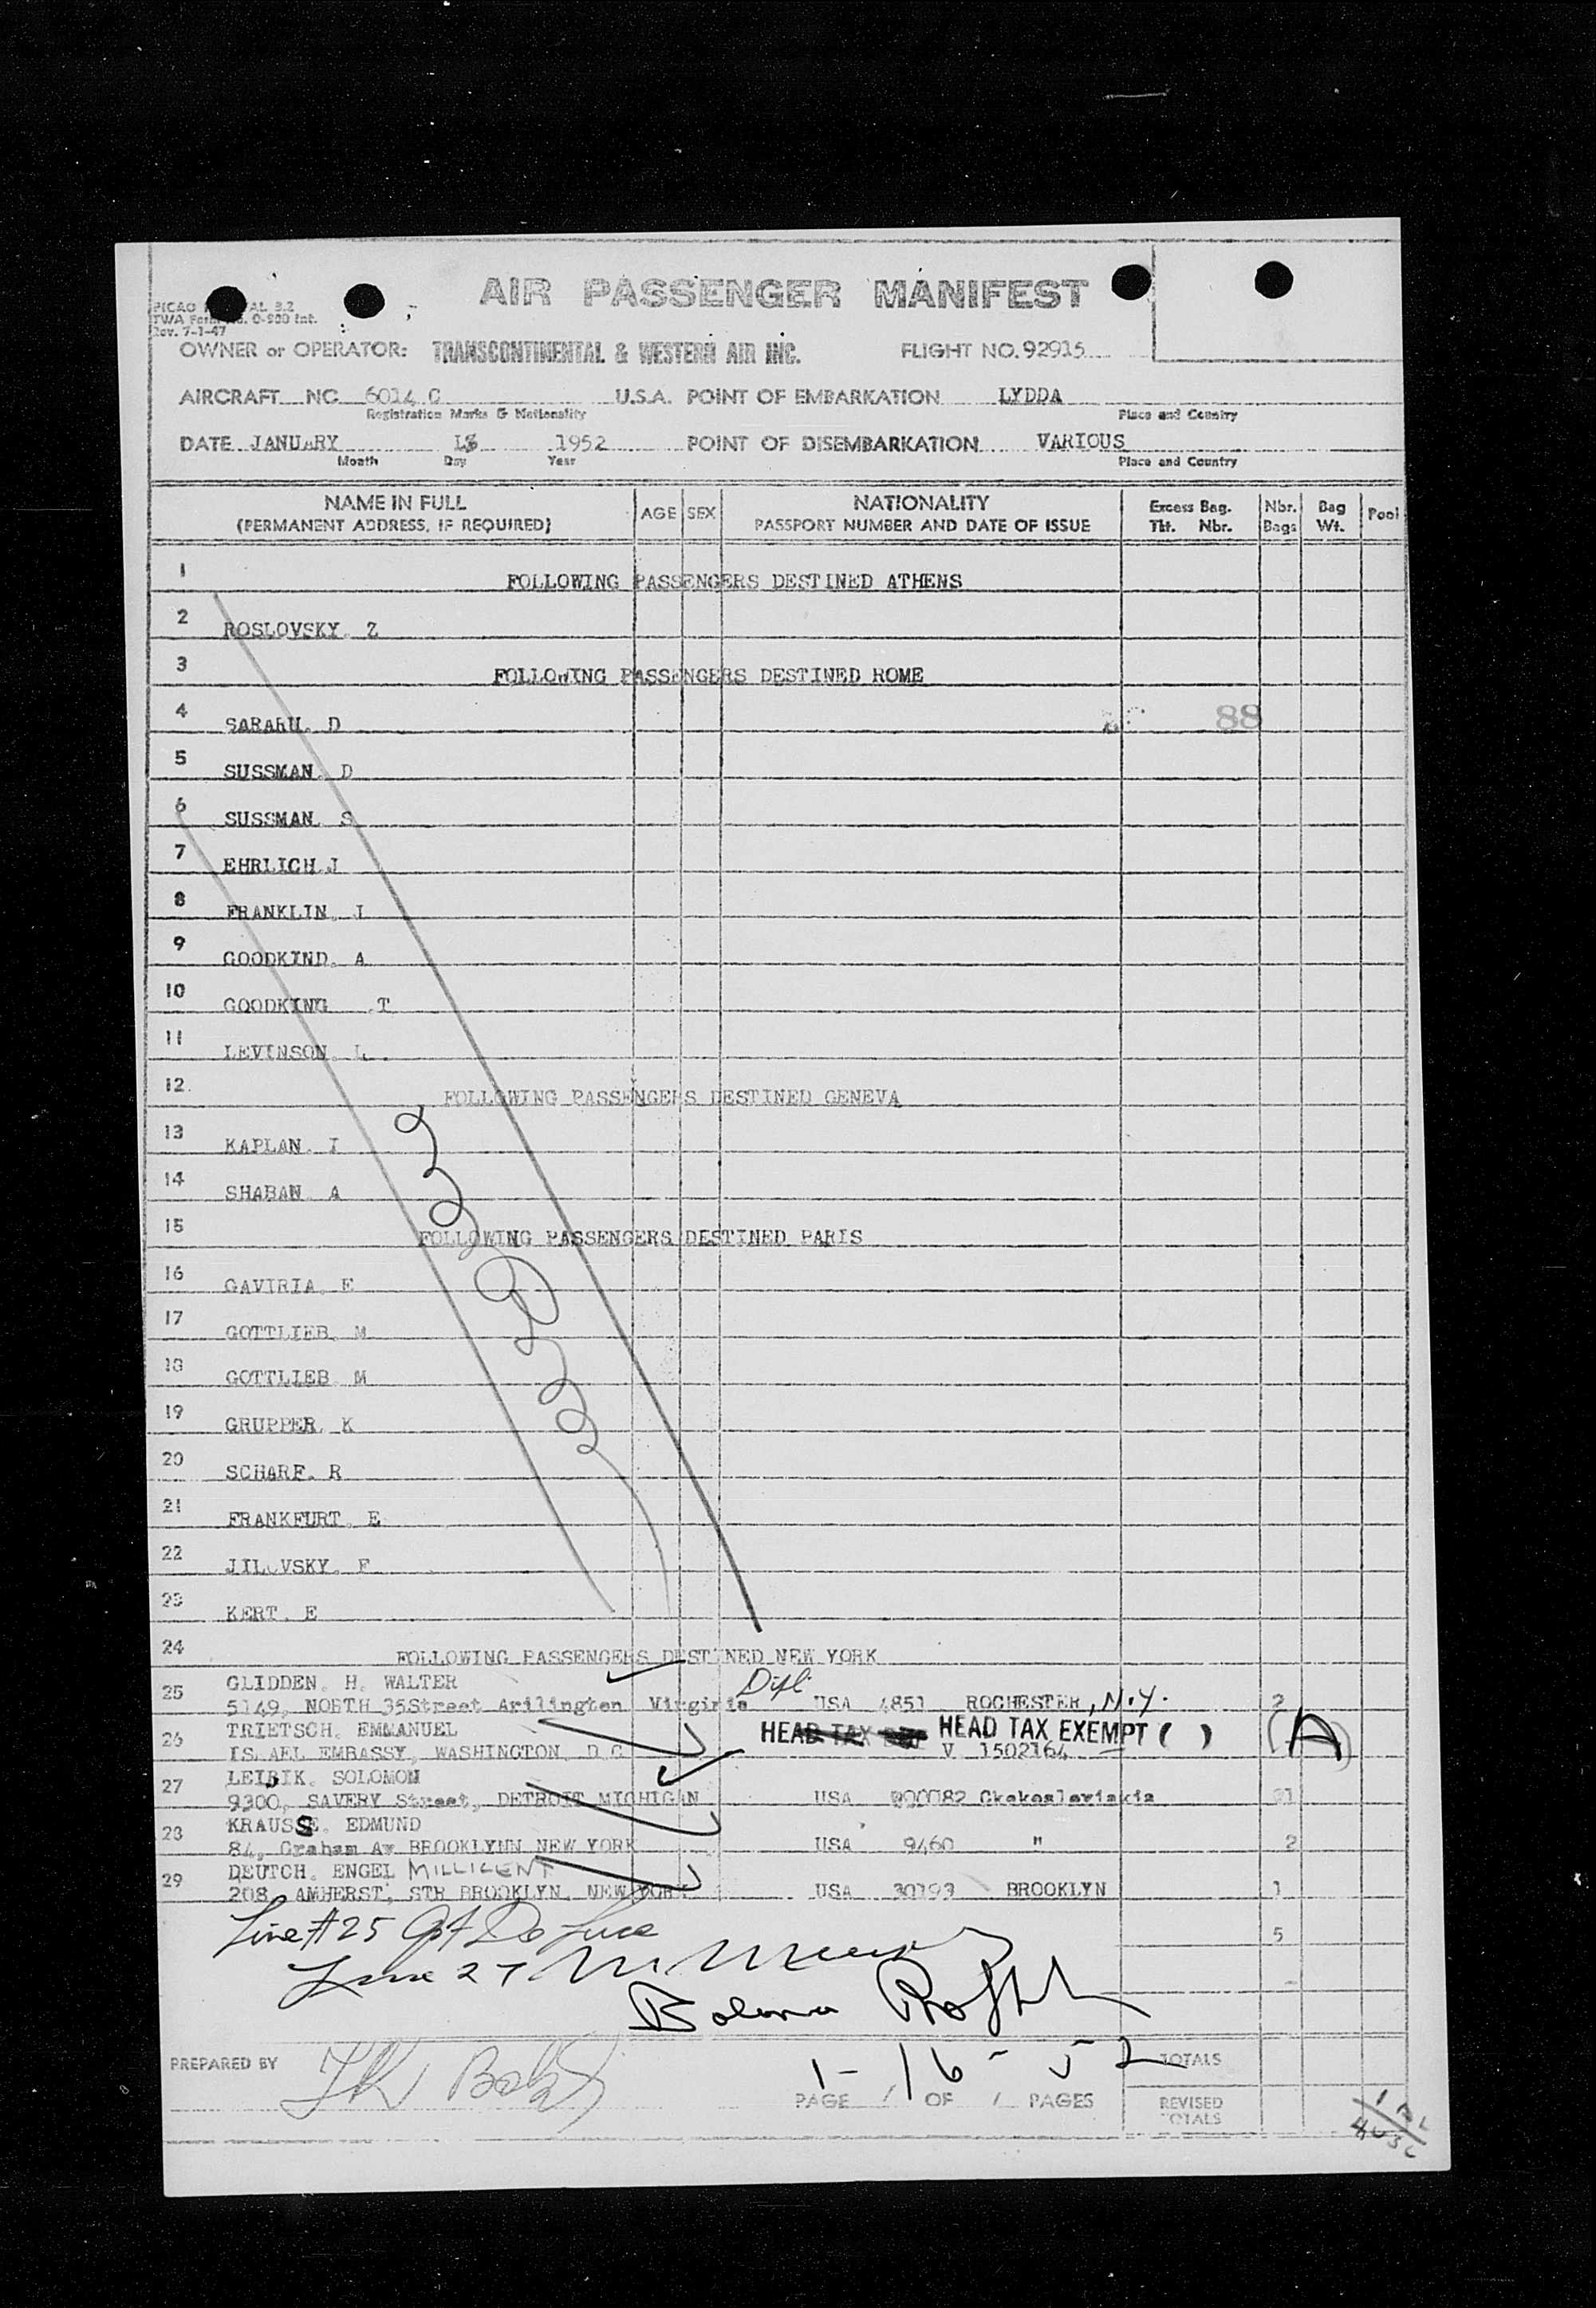 AIR PASSENGER MANIFEST
TWA Form No. O-900 Int.
Rev. 7-1-47
OWNER or OPERATOR: TRANSCONTINENTAL & WESTERN AIR INC. FLIGHT NO. 92915
AIRCRAFT NC 6014 C U.S.A. POINT OF EMBARKATION LYDDA
Registration Marks & Nationality Place and Country
DATE JANUARY 1952 POINT OF DISEMBARKATION VARIOUS
Month Day Year Place and Country
NAME IN FULL AGE SEX NATIONALITY Excess Bag. Nbr. Bag Pool
(PERMANENT ADDRESS, IF REQUIRED) PASSPORT NUMBER AND DATE OF ISSUE Tkt. Nbr. Bags Wt.
1 FOLLOWING PASSENGERS DESTINED ATHENS
2 ROSLOVSKY. Z
3 FOLLOWING PASSENGERS DESTINED ROME
4 D 88
5 SUSSMAN. D
6 SUSSMAN. S
7 EHRLICH.J
8 FRANKLIN. I
9 GOODKIND. A
10 GOODKING .T
11 LEVINSON. L.
12. FOLLOWING PASSENGERS DESTINED GENEVA
13 KAPLAN. I
14 SHABAN A
15 FOLLOWING PASSENGERS DESTINED PARIS
16 GAVIRIA. E
17 GOTTLIEB. M
18 GOTTLIEB M
19 GRUPPER. K
20 SCHARF. R
21 FRANKFURT. E
22 JILOVSKY. F
23 KERT. E
24 FOLLOWING PASSENGERS DESTINED NEW YORK
GLIDDEN. H. WALTER Dipl
25 5149, NORTH 35Street Arilington Virginia USA 4851 ROCHESTER, N.Y. 2
TRIETSCH. EMMANUEL HEAD TAX HEAD TAX EXEMPT ( ) (A)
26 ISRAEL EMBASSY, WASHINGTON, D C V 1502164
LEIBIK. SOLOMON
27 9300, SAVERY Street, DETROIT MICHIGAN USA 1
KRAUSS. EDMUND
28 84, Graham Av BROOKLYNN NEW YORK USA 9460 " 2
DEUTCH. ENGEL MILLICENT
29 208, AMHERST, STR BROOKLYN, NEW YORK USA 30193 BROOKLYN 1
Line #25 5
Line 27
PREPARED BY 1-16-52 TOTALS
PAGE 1 OF 1 PAGES REVISED
TOTALS